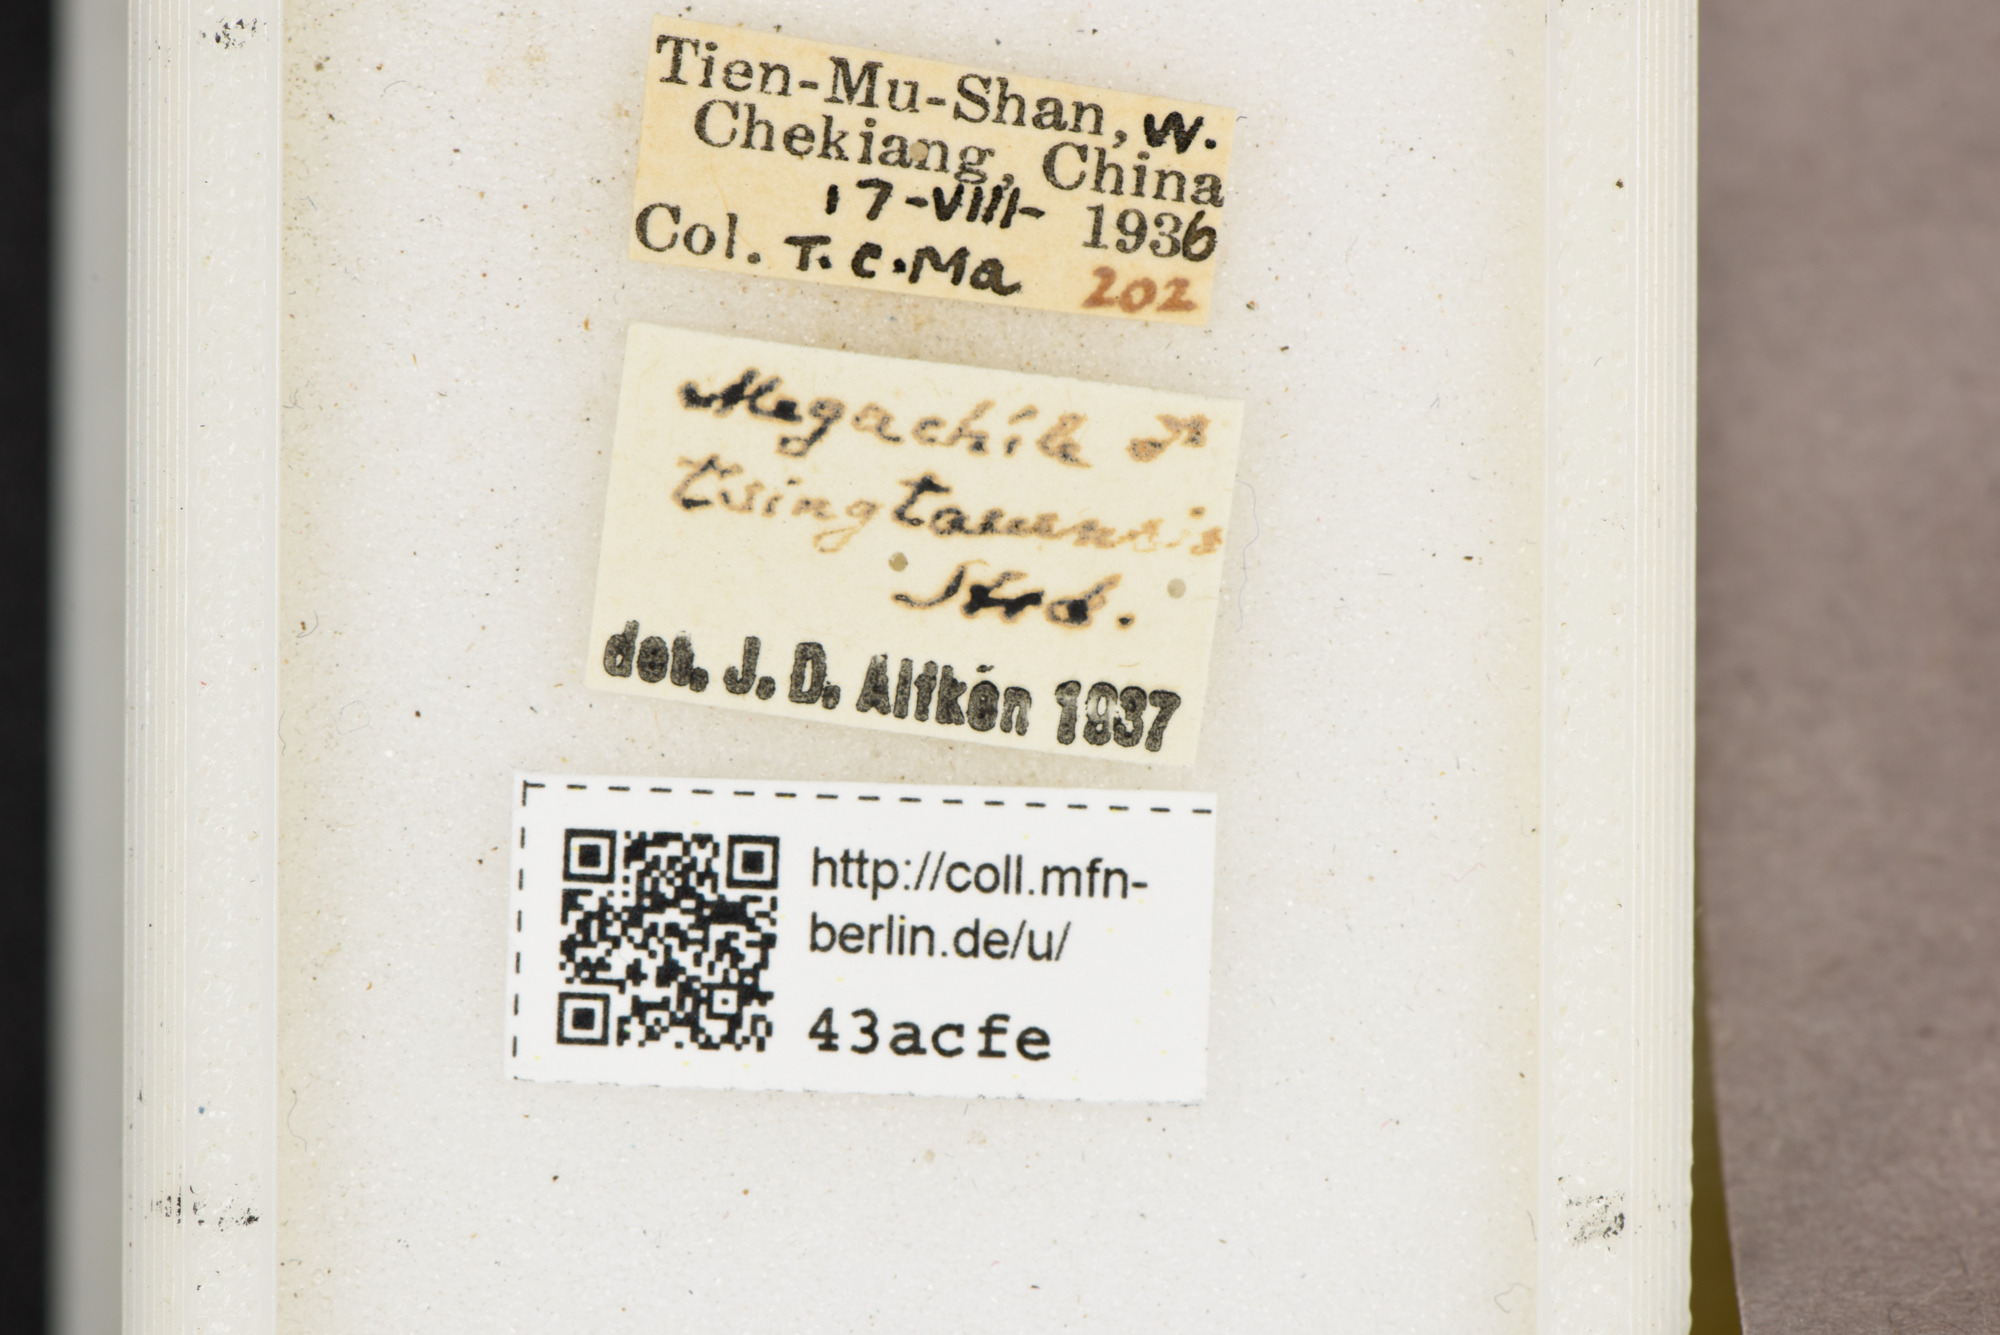 Tien-Mu-Shan, W.
Chekiang, China
17-VIII- 1936
Col. T.C.Ma 202
Megachile ♂
tsingtauensis
Strd.
det. J. D. Alfken 1937
http://coll.mfn-
berlin.de/u/
43acfe